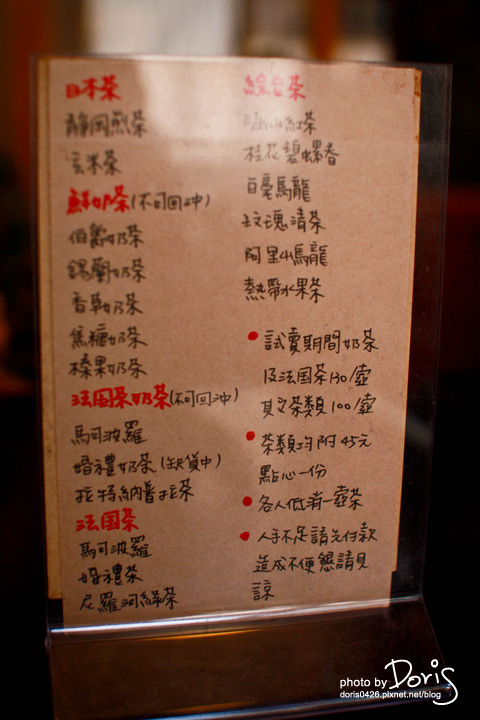 日本茶
靜岡煎茶
玄米茶
鮮奶茶(不可回沖)
伯爵奶茶
錫蘭奶茶
香草奶茶
焦糖奶茶
榛果奶茶
法国茶奶茶(不可回沖)
馬可波羅
婚禮奶茶(缺貨中)
拉特納普拉茶
法国茶
馬可波羅
婚禮茶
尼羅河綠茶
綜合茶
紅茶
桂花碧螺春
白毫烏龍
玫瑰清茶
阿里山烏龍
熱帶水果茶
● 試賣期間奶茶
及法国茶130/壺
其它茶類100/壺
● 茶類均附45元
點心一份
● 各人低消一壺茶
● 人手不足請先付款
造成不便懇請見
諒
photo by Doris
doris0426.pixnet.net/blog